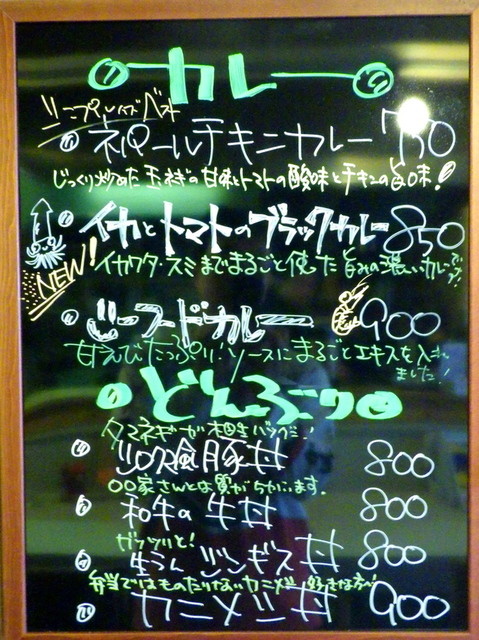 カレー
シンプルイズベスト
ネパールチキンカレー 750
じっくり炒めた玉ネギの甘味とトマトの酸味とチキンの旨味!
イカとトマトのブラックカレー 850
NEW!
イカワタ・スミまでまるごと使った旨みの濃いカレー
シーフードカレー 900
甘えびたっぷり!ソースにまるごとエキスを入れ
ました!
どんぶり
タマネギが相性バツグン!
風豚丼 800
〇〇家さんとは質がちがいます。
和牛の牛丼 800
ガッツリと!
生ラム ジンギス丼 800
弁当ではものたりないカニメシ好きな方へ!
カニメシ丼 900